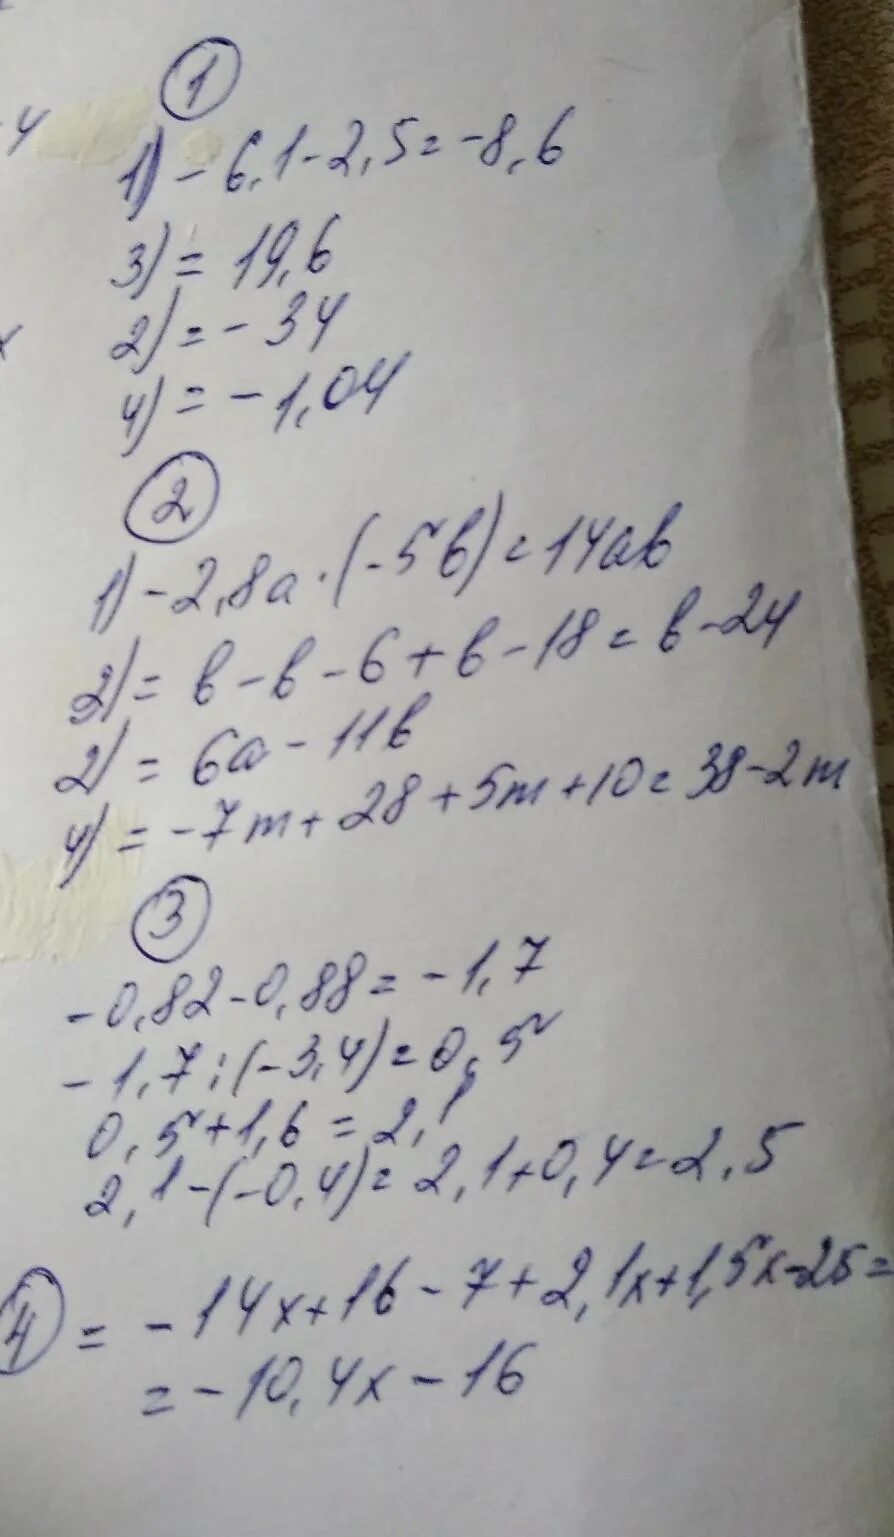 1
1) - 6,1 - 2,5 = -8,6
3) = 19,6
2) = - 34
4) = - 1,04
2
1) - 2,8a · (- 5b) = 14ab
3) = b - b - 6 + b - 18 = b - 24
2) = 6a - 11b
4) = - 7m + 28 + 5m + 10 = 38 - 2m
3
- 0,82 - 0,88 = - 1,7
- 1,7 : (- 3,4) = 0,5
0,5 + 1,6 = 2,1
2,1 - (- 0,4) = 2,1 + 0,4 = 2,5
4 = - 14x + 16 - 7 + 2,1x + 1,5x - 25 =
= - 10,4x - 16